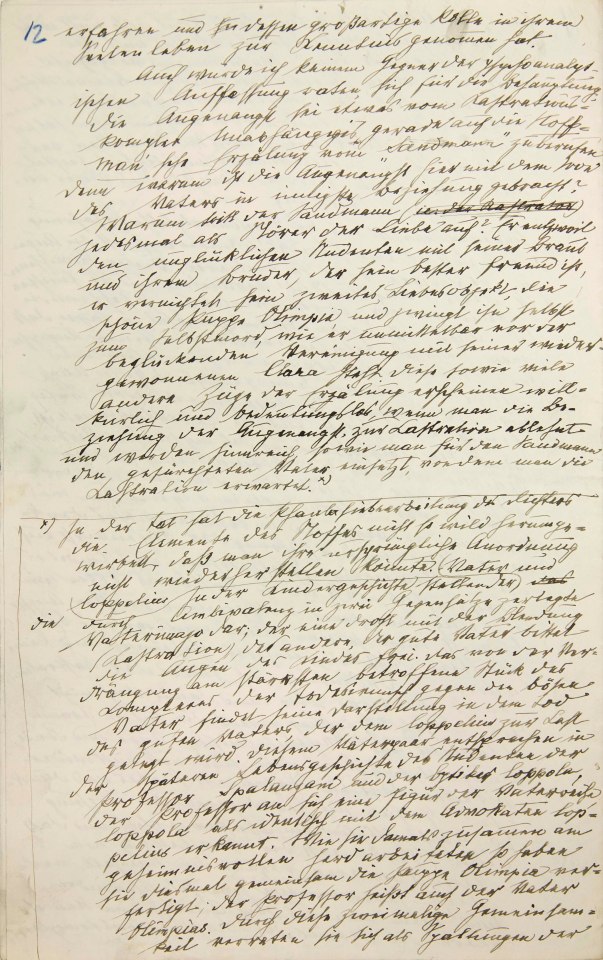 12 erfahren und zu dessen großartige Rolle in ihrem
Seelenleben zur Kenntnis genommen hat.
Auch würde ich keinem Gegner der psychoanalyt
ischen Auffassung raten, sich für die Behauptung
die Augenangst sei etwas vom Kastrations-
komplex unabhängiges, gerade auf die Hoff-
mann'sche Erzälung vom „Sandmann" zu berufen
denn warum ist die Augenangst hier mit dem Tode
des Vaters in innigste Beziehung gebracht?
Warum tritt der Sandmann (
jedesmal als Störer der Liebe auf? Er entzweit
den unglücklichen Studenten mit seiner Braut
und ihrem Bruder, der sein bester Freund ist,
er vernichtet sein zweites Liebesobjekt, die
schöne Puppe Olimpia und zwingt ihn selbst
zum Selbstmord, wie er unmittelbar vor der
beglückenden Vereinigung mit seiner wieder-
gewonnenen Clara steht. Diese sowie viele
andere Züge der Erzälung erscheinen will-
kürlich und bedeutungslos, wenn man die Be-
ziehung der Augenangst zur Kastration ablehnt
und werden sinnreich, sowie man für den Sandmann
den gefürchteten Vater einsetzt, von dem man die
Kastration erwartet. x)
x) In der Tat hat die Phantasiebearbeitung des Dichters
die Elemente des Stoffes nicht so wild herumge-
wirbelt, daß man ihre ursprüngliche Anordnung
nicht wiederherstellen könnte. Vater und
Coppelius in der Kindergeschichte stellen
die durch Ambivalenz in zwei Gegensätze zerlegte
Vaterimago dar; der eine droht mit der Blendung
(Kastration), der andere, der gute Vater bittet
die Augen des Kindes frei. Das von der Ver-
drängung am stärksten betroffene Stück des
Komplexes der Todeswunsch gegen den bösen
Vater findet seine Darstellung in dem Tod
des guten Vaters der dem Coppelius zur Last
gelegt wird. Diesem Vaterpaar entsprechen in
der späteren Lebensgeschichte des Studenten der
Professor Spalanzani und der Optiker Coppola,
der Professor an sich eine Figur der Vaterreihe
Coppola als identisch mit dem Advokaten Cop-
pelius erkannt. Wie sie damals zusammen am
geheimnisvollen Herd arbeiteten, so haben
sie diesmal gemeinsam die Puppe Olimpia ver-
fertigt; der Professor heißt auch der Vater
Olimpias. Durch diese zweimalige Gemeinsam-
keit verraten sie sich als Spaltungen der